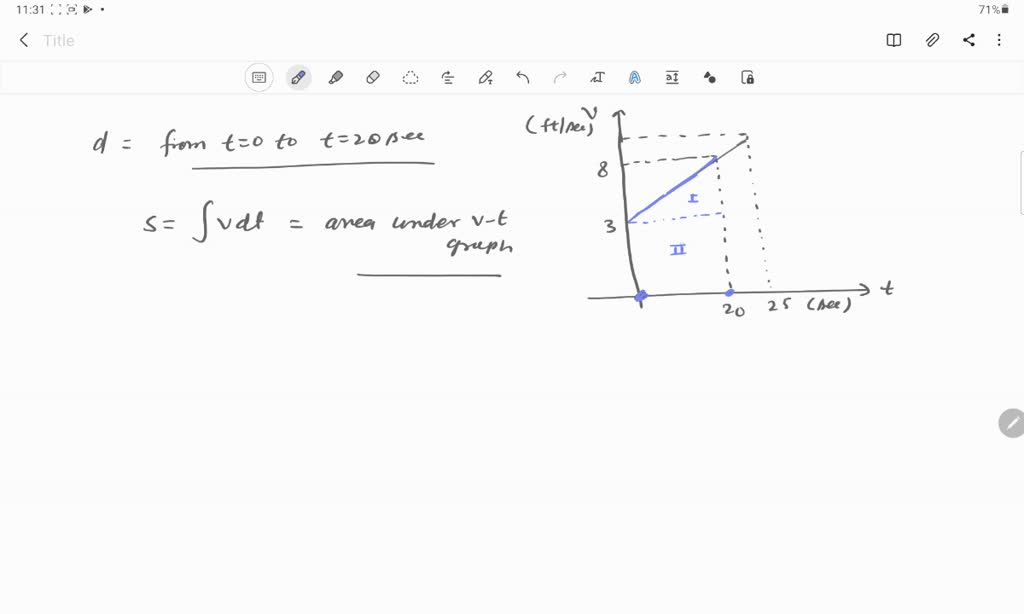 11:31
71%
Title
d = from t=0 to t=20 sec
s = ∫vdt = area under v-t
graph
v
(ft/sec)
8
I
3
II
t
20 25 (sec)